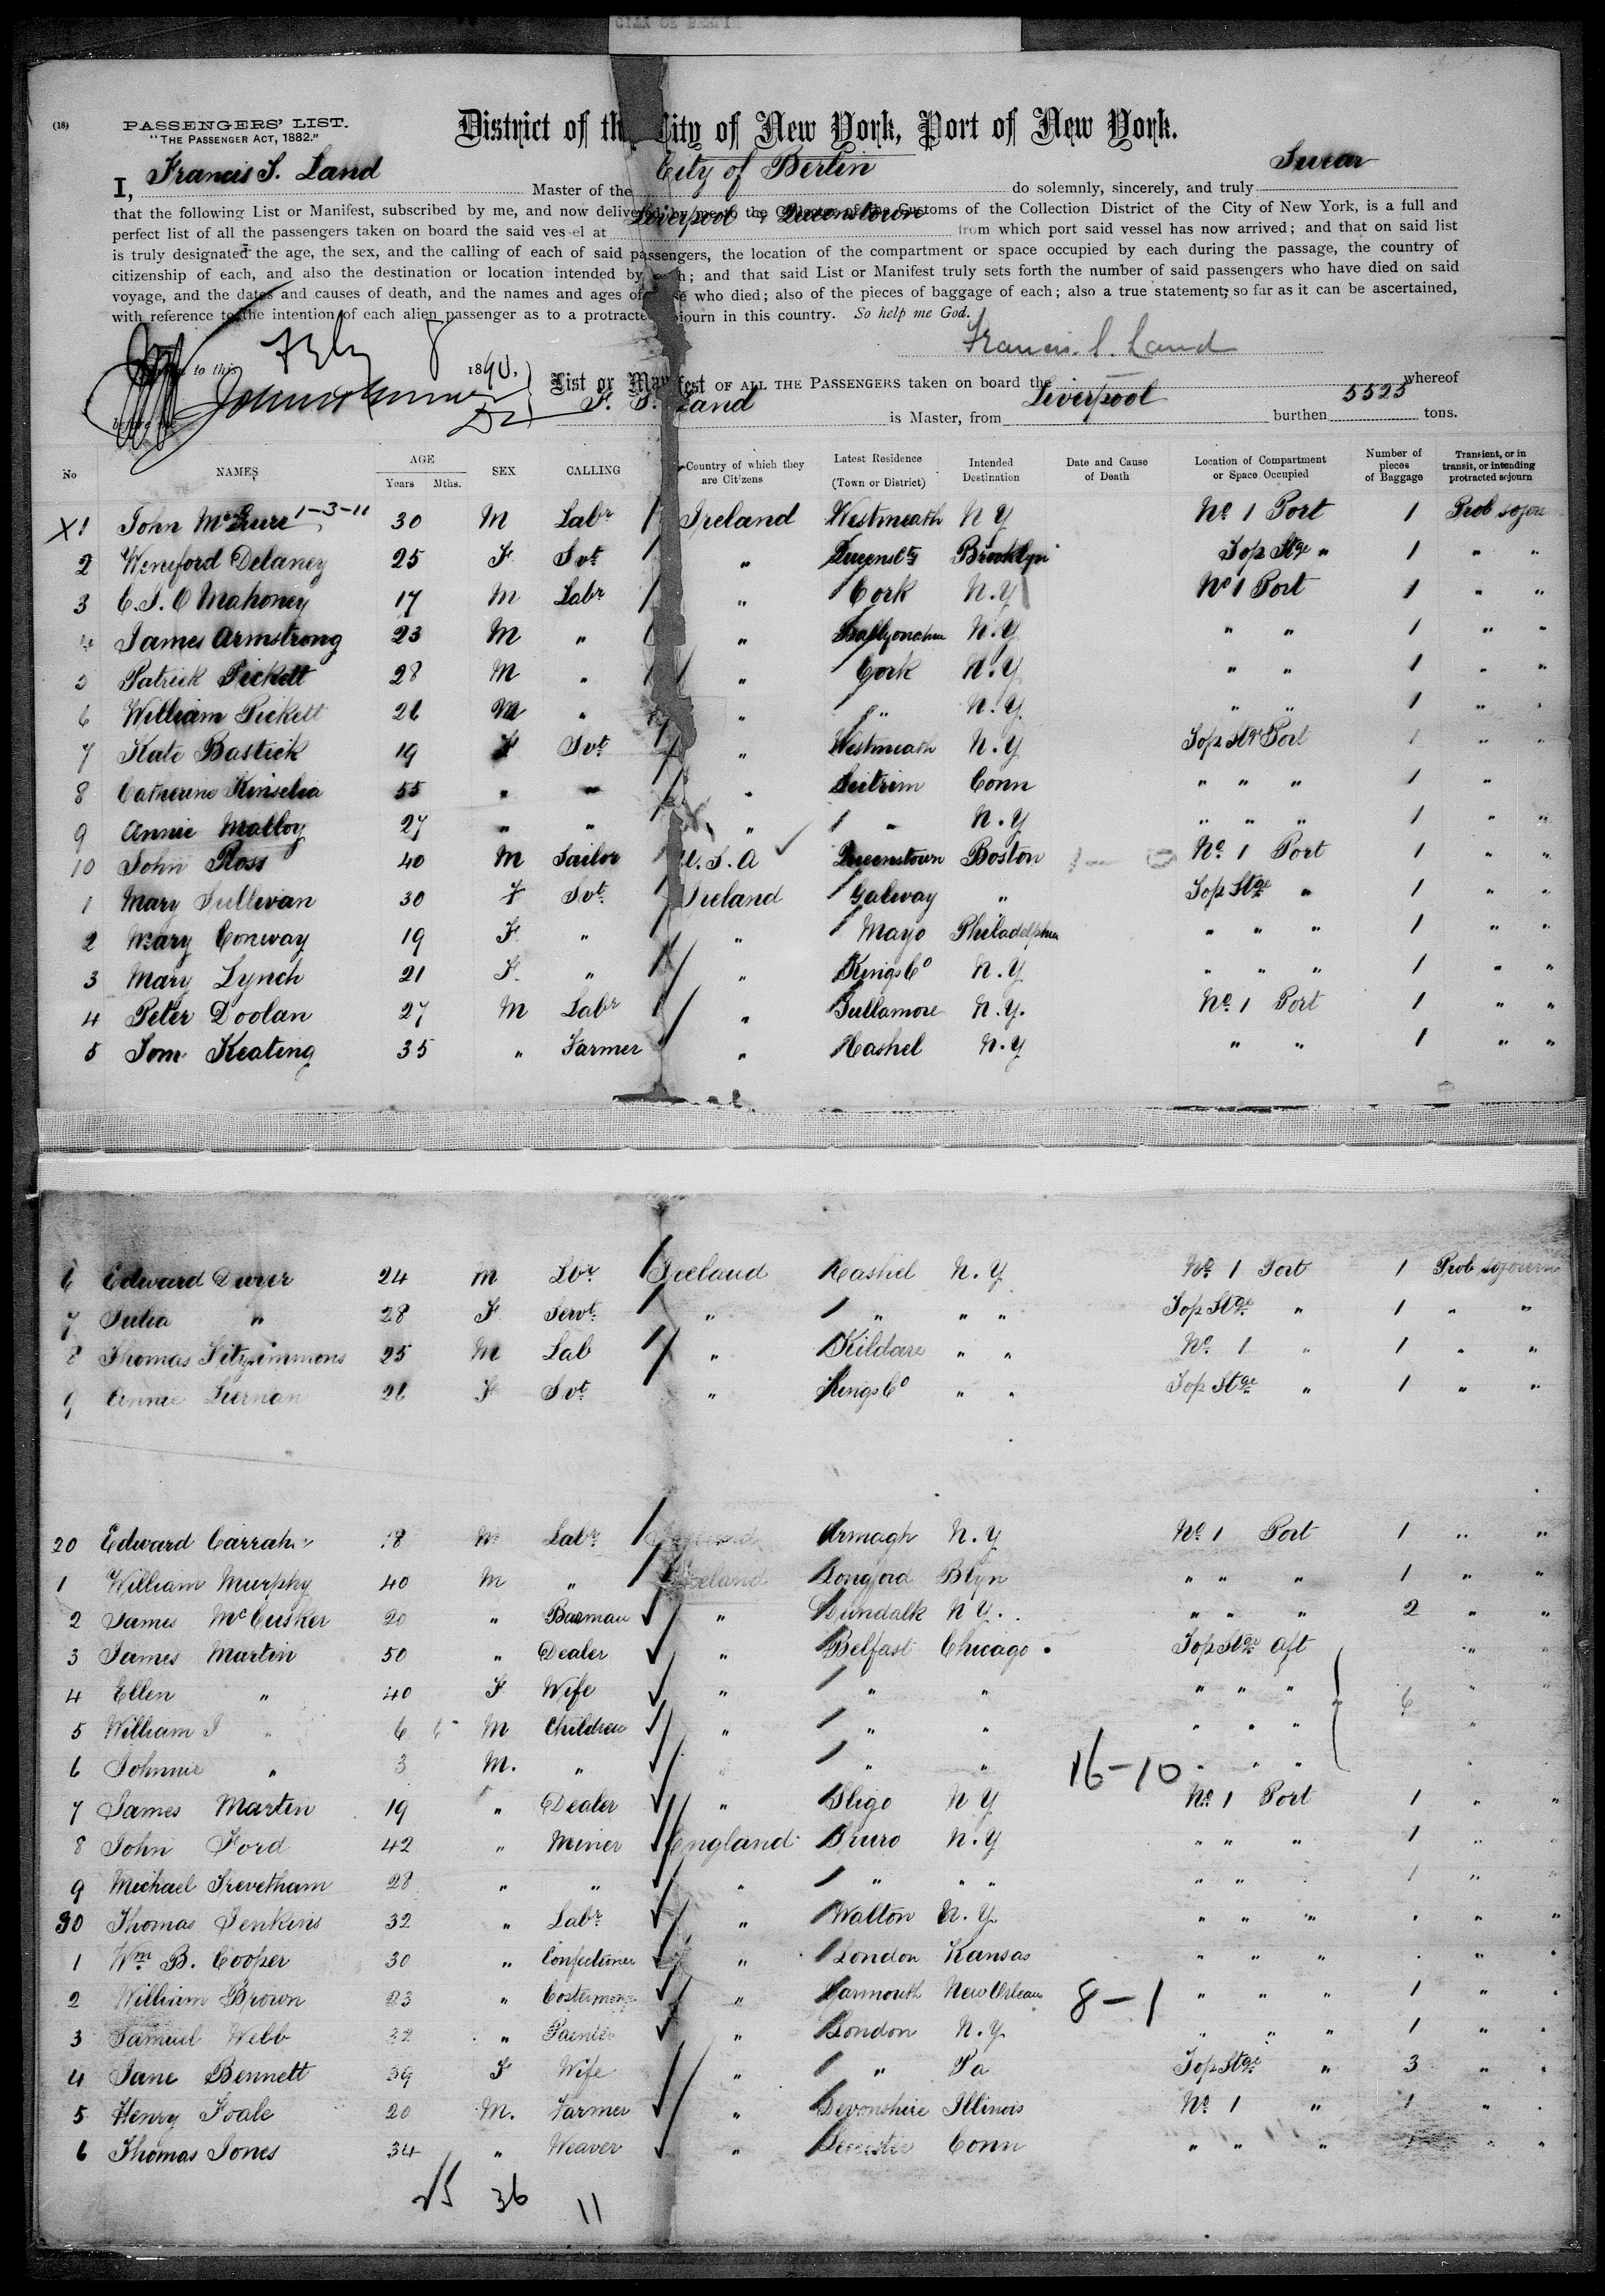 CITY OF BERLIN
(18)
PASSENGERS' LIST.
"THE PASSENGER ACT, 1882."
District of the City of New York, Port of New York.
I, Francis S. Land Master of the City of Berlin do solemnly, sincerely, and truly Swear
that the following List or Manifest, subscribed by me, and now delivered by me to the Collector of the Customs of the Collection District of the City of New York, is a full and
perfect list of all the passengers taken on board the said vessel at Liverpool & Queenstown from which port said vessel has now arrived; and that on said list
is truly designated the age, the sex, and the calling of each of said passengers, the location of the compartment or space occupied by each during the passage, the country of
citizenship of each, and also the destination or location intended by each; and that said List or Manifest truly sets forth the number of said passengers who have died on said
voyage, and the dates and causes of death, and the names and ages of those who died; also of the pieces of baggage of each; also a true statement, so far as it can be ascertained,
with reference to the intention of each alien passenger as to a protracted sojourn in this country. So help me God.
Francis. S. Land
to this 8 1890.
List or Manifest OF ALL THE PASSENGERS taken on board the whereof
F. S. Land is Master, from Liverpool burthen 5525 tons.
No NAMES AGE Years Mths. SEX CALLING Country of which they are Citizens Latest Residence (Town or District) Intended Destination Date and Cause of Death Location of Compartment or Space Occupied Number of pieces of Baggage Transient, or in transit, or intending protracted sojourn
X1 John 1-3-11 30 M Labr Ireland Westmeath N Y No 1 Port 1 Prob sojourn
2 Weneford Delaney 25 F Svt " Queensty Brooklyn Top Stge " 1 " "
3 C. J. O Mahoney 17 M Labr " Cork N.Y No 1 Port 1 " "
4 James Armstrong 23 M " " N.Y " " 1 " "
5 Patrick Pickett 28 M " " Cork N.Y " " 1 " "
6 William Pickett 26 M " " " N.Y " " 1 " "
7 Kate Bastick 19 F Svt " Westmeath N.Y Top Stge Port 1 " "
8 Catherine Kinselia 55 " " " Leitrim Conn " " " 1 "
9 Annie Malloy 27 " " " " N.Y " " " 1 " "
10 John Ross 40 M Sailor U.S.A Queenstown Boston No 1 Port 1 " "
1 Mary Sullivan 30 F Svt Ireland Galway " Top Stge " 1 " "
2 Mary Conway 19 F " " Mayo Philadelphia " " " 1 " "
3 Mary Lynch 21 F. " " Kings Co N.Y " " " 1 " "
4 Peter Doolan 27 M Labr " Tullamore N.Y. No 1 Port 1 " "
5 Tom Keating 35 " Farmer " Kashel N.Y " " 1 " "
6 Edward Dwyer 24 M Lbr Ireland Kashel N.Y No 1 Port 1 Prob sojourn
7 Julia " 28 F Servt " " " " Top Stge " 1 " "
8 Thomas Fitzsimmons 25 M Lab " Kildare " " No 1 " 1 " "
9 Annie 26 F Svt " Kings Co " " Top Stge " 1 " "
20 Edward 18 M Labr Armagh N.Y No 1 Port 1 " "
1 William Murphy 40 M " Ireland Longford Blyn " " " 1 " "
2 James McCusker 20 " Barman " Dundalk N Y. " " " 2 " "
3 James Martin 50 " Dealer " Belfast Chicago Top Stge Aft "
4 Ellen " 40 F Wife " " " " " " 6 " "
5 William J " 6 M Children " " " " " " "
6 Johnnie " 3 M. " " " " 16-10 " " "
7 James Martin 19 " Dealer " Sligo N Y No 1 Port 1 " "
8 John Ford 42 " Miner England Truro N.Y " " " 1 " "
9 Michael Trevetham 28 " " " " " " " " 1 " "
30 Thomas Jenkins 32 " Labr " Walton N.Y. " " " " " "
1 Wm B. Cooper 30 " Confectioner " London Kansas " " " " " "
2 William Brown 23 " Costermonger " Yarmouth New Orleans 8-1 " " " 1 " "
3 Samuel Webb 32 " Painter " London N.Y. " " " 1 " "
4 Jane Bennett 39 F Wife " " Pa Top Stge " 3 " "
5 Henry Foale 20 M. Farmer " Devonshire Illinois No 1 " 1 " "
6 Thomas Jones 34 " Weaver " Leicester Conn " " " 1 " "
25 36 11